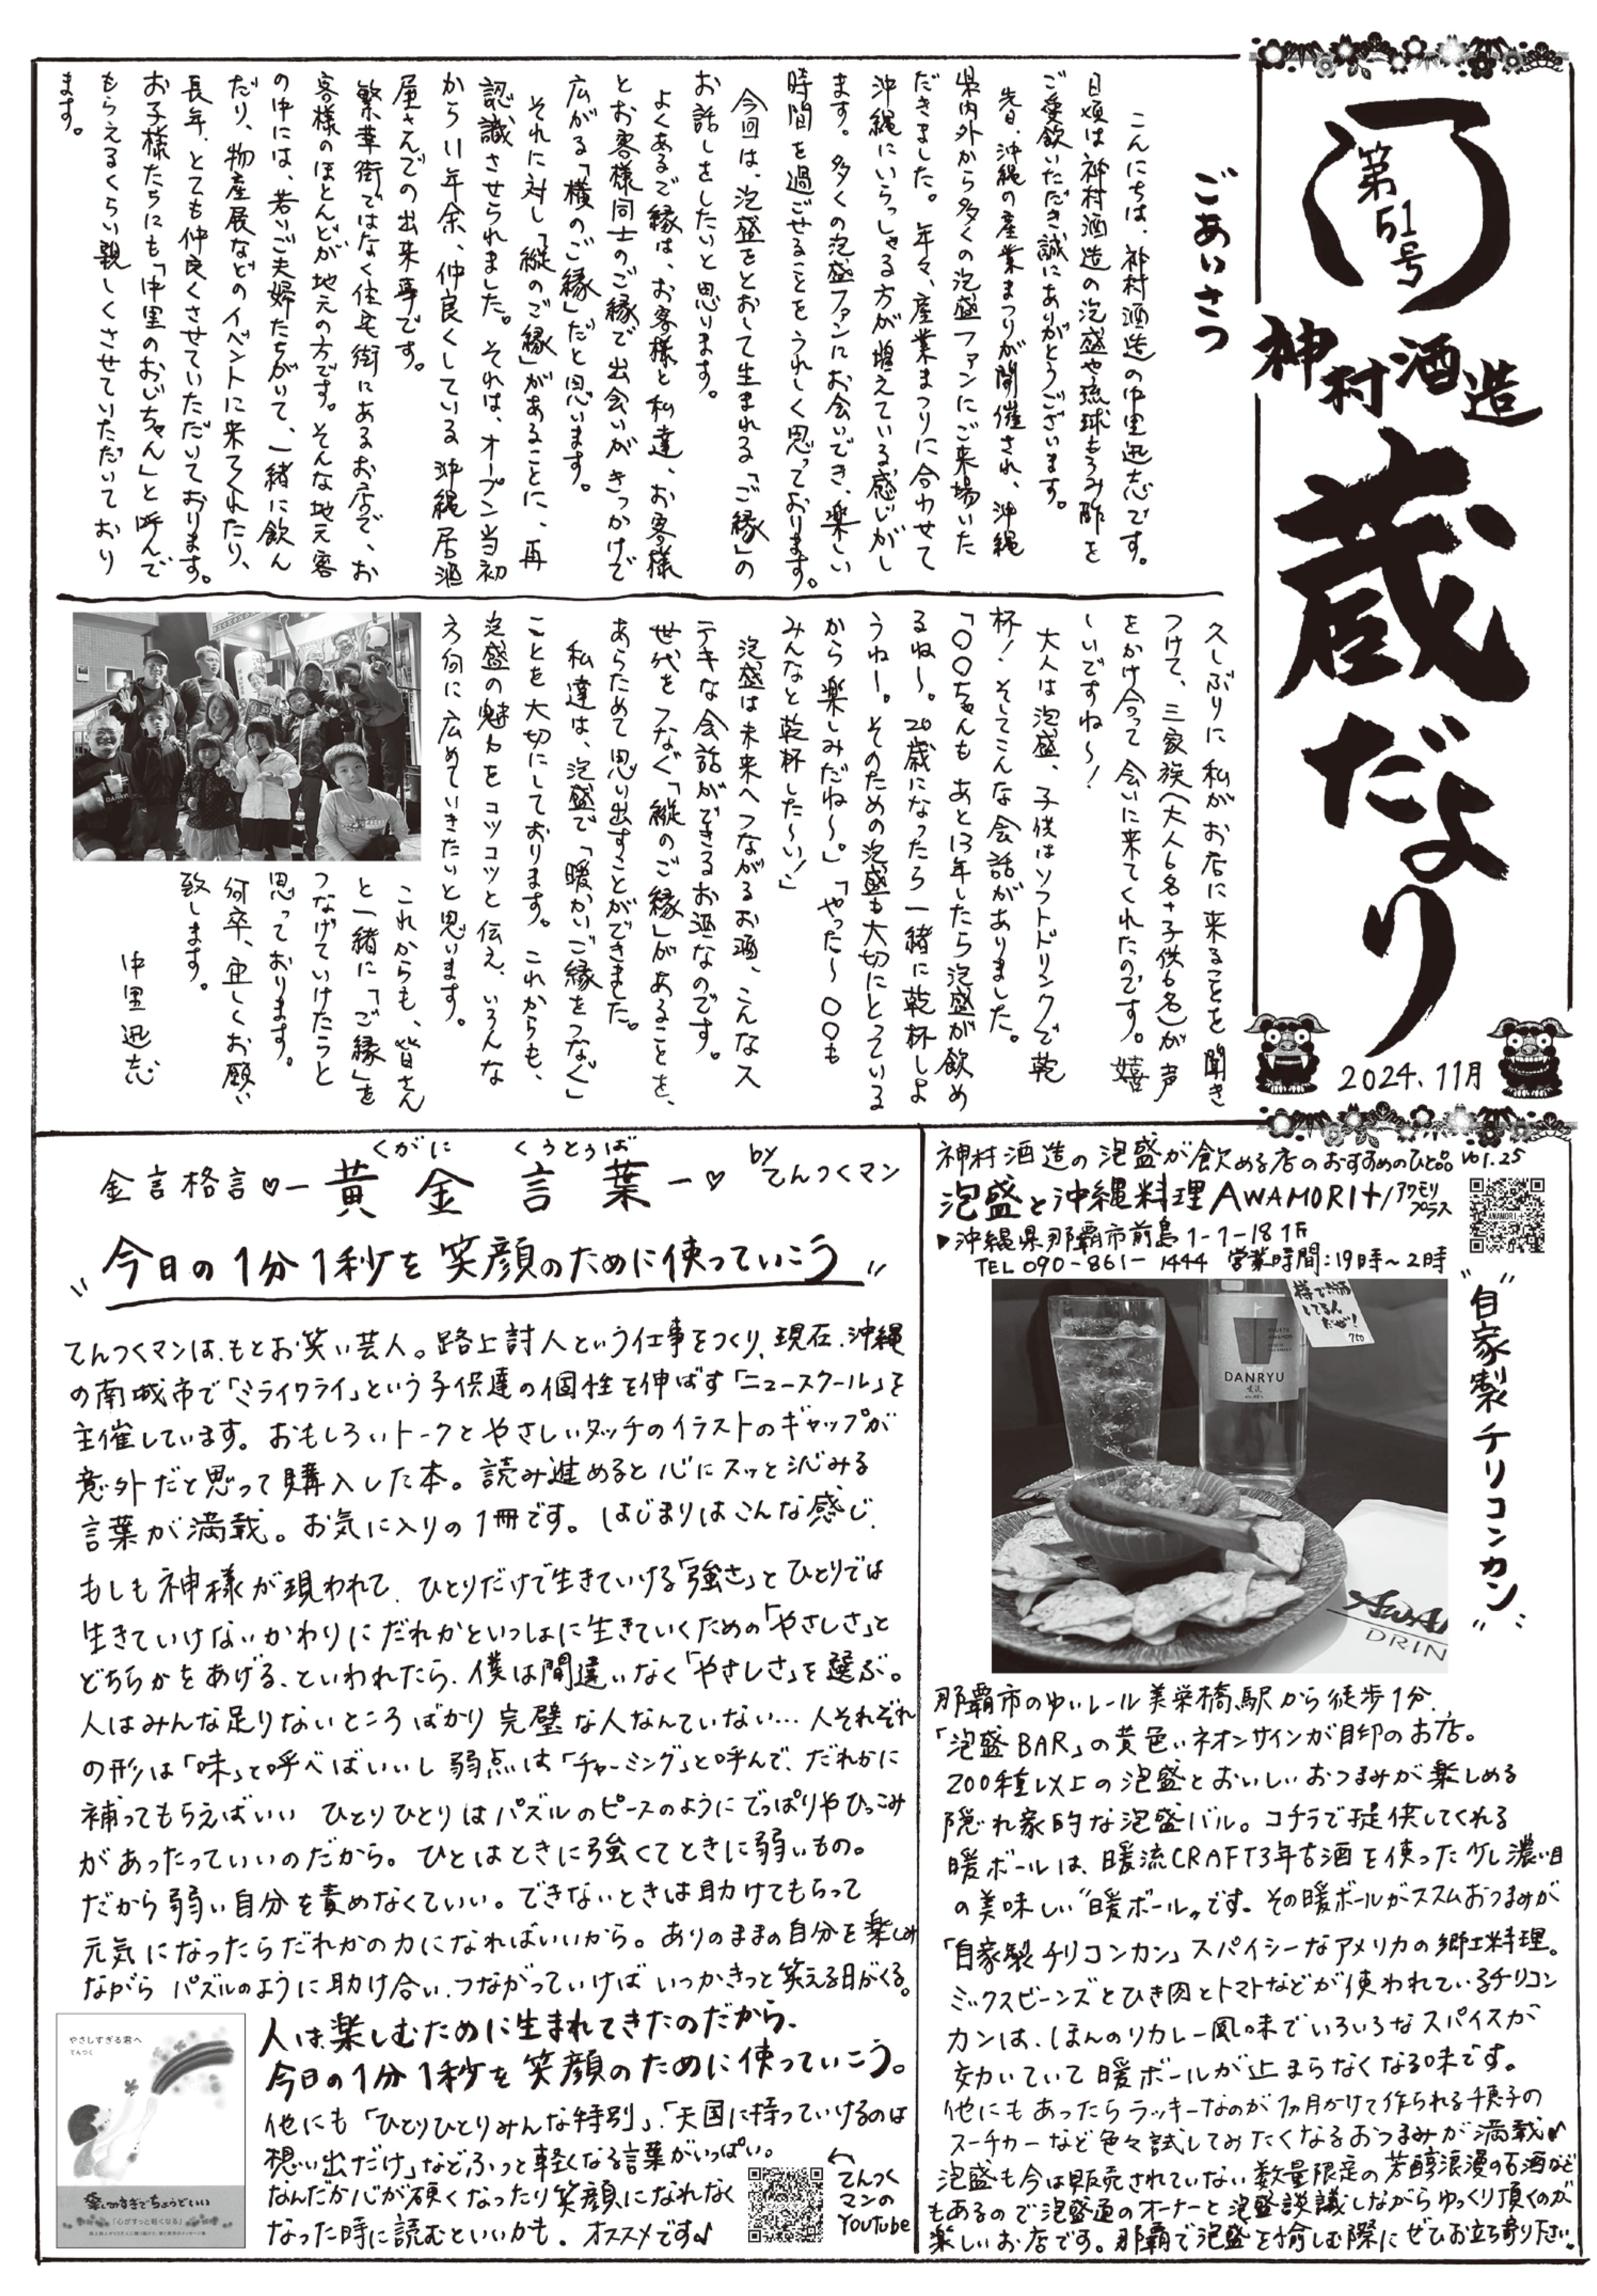 第51号
神村酒造
蔵だより
2024.11月
ごあいさつ
こんにちは、神村酒造の中里迅志です。
日頃は神村酒造の泡盛や琉球もろみ酢を
ご愛飲いただき誠にありがとうございます。
先日、沖縄の産業まつりが開催され、沖縄
県内外から多くの泡盛ファンにご来場いた
だきました。年々、産業まつりに合わせて
沖縄にいらっしゃる方が増えている感じがし
ます。多くの泡盛ファンにお会いでき、楽しい
時間を過ごせることをうれしく思っております。
今回は、泡盛をとおして生まれる「ご縁」の
お話しをしたいと思います。
よくあるご縁は、お客様と私達、お客様
とお客様同士のご縁で出会いがきっかけで
広がる「横のご縁」だと思います。
それに対し「縦のご縁」があることに、再
認識させられました。それは、オープン当初
から11年余、仲良くしている沖縄居酒
屋さんでの出来事です。
繁華街ではなく住宅街にあるお店で、お
客様のほとんどが地元の方です。そんな地元客
の中には、若いご夫婦たちがいて、一緒に飲ん
だり、物産展などのイベントに来てくれたり、
長年、とても仲良くさせていただいております。
お子様たちにも「中里のおじちゃん」と呼んで
もらえるくらい親しくさせていただいており
ます。
久しぶりに私がお店に来ることを聞き
つけて、三家族（大人6名+子供6名）が声
をかけ合って会いに来てくれたのです。嬉
しいですね〜！
大人は泡盛、子供はソフトドリンクで乾
杯！そしてこんな会話がありました。
「〇〇ちゃんもあと13年したら泡盛が飲め
るね〜。20歳になったら一緒に乾杯しよ
うね〜。そのための泡盛も大切にとっている
から楽しみだね〜。」「やった〜〇〇も
みんなと乾杯した〜い！」
泡盛は未来へつながるお酒、こんなス
テキな会話ができるお酒なのです。
世代をつなぐ「縦のご縁」があることを、
あらためて思い出すことができました。
私達は、泡盛で「暖かいご縁をつなぐ」
ことを大切にしております。これからも、
泡盛の魅力をコツコツと伝え、いろんな
方向に広めていきたいと思います。
これからも、皆さん
と一緒に「ご縁」を
つなげていけたらと
思っております。
何卒、宜しくお願い
致します。
中里迅志
くがに くとぅば
金言格言♡ー黄金言葉ー♡ by てんつくマン
"今日の1分1秒を笑顔のために使っていこう"
てんつくマンは、もとお笑い芸人。路上討人という仕事をつくり、現在、沖縄
の南城市で「ミライワライ」という子供達の個性を伸ばす「ニュースクール」を
主催しています。おもしろいトークとやさしいタッチのイラストのギャップが
意外だと思って購入した本。読み進めると心にスッと沁みる
言葉が満載。お気に入りの1冊です。はじまりはこんな感じ.
もしも神様が現われて、ひとりだけで生きていける「強さ」とひとりでは
生きていけないかわりにだれかといっしょに生きていくための「やさしさ」と
どちらかをあげる、といわれたら、僕は間違いなく「やさしさ」を選ぶ。
人はみんな足りないところばかり 完璧な人なんていない… 人それぞれ
の形は「味」と呼べばいいし 弱点は「チャーミング」と呼んで、だれかに
補ってもらえばいい ひとりひとりはパズルのピースのようにでっぱりやひっこみ
があったっていいのだから。ひとはときに強くてときに弱いもの。
だから弱い自分を責めなくていい。できないときは助けてもらって
元気になったらだれかの力になればいいから。ありのままの自分を楽しみ
ながら パズルのように助け合い、つながっていけば いつかきっと笑える日がくる。
人は楽しむために生まれてきたのだから、
今日の1分1秒を笑顔のために使っていこう。
他にも「ひとりひとりみんな特別」、「天国に持っていけるのは
想い出だけ」など、ふっと軽くなる言葉がいっぱい。
なんだか心が硬くなったり笑顔になれなく
なった時に読むといいかも。オススメです♪
てんつく
マンの
YouTube
やさしすぎる君へ
てんつく
「心がすっと軽くなる」
神村酒造の泡盛が飲める店のおすすめのひと品 vol.25
泡盛と沖縄料理 AWAMORI+/アワモリプラス
AWAMORI+
▶沖縄県那覇市前島1-1-18 1F
TEL 090-861-1444 営業時間：19時〜2時
"自家製チリコンカン"
DANRYU
暖流
AWA
DRIN
那覇市のゆいレール美栄橋駅から徒歩1分、
「泡盛BAR」の黄色いネオンサインが目印のお店。
200種以上の泡盛とおいしいおつまみが楽しめる
隠れ家的な泡盛バル。コチラで提供してくれる
暖ボールは、暖流CRAFT3年古酒を使った少し濃い目
の美味しい"暖ボール"です。その暖ボールがススムおつまみが
「自家製チリコンカン」スパイシーなアメリカの郷土料理。
ミックスビーンズとひき肉とトマトなどが使われているチリコン
カンは、ほんのりカレー風味でいろいろなスパイスが
効いていて暖ボールが止まらなくなる味です。
他にもあったらラッキーなのが1ヵ月かけて作られる千恵子の
スーチカーなど色々試してみたくなるおつまみが満載♪
泡盛も今は販売されていない数量限定の芳醇浪漫の古酒など
もあるので泡盛通のオーナーと泡盛談議しながらゆっくり頂くのが
楽しいお店です。那覇で泡盛を愉しむ際にぜひお立ち寄り下さい。